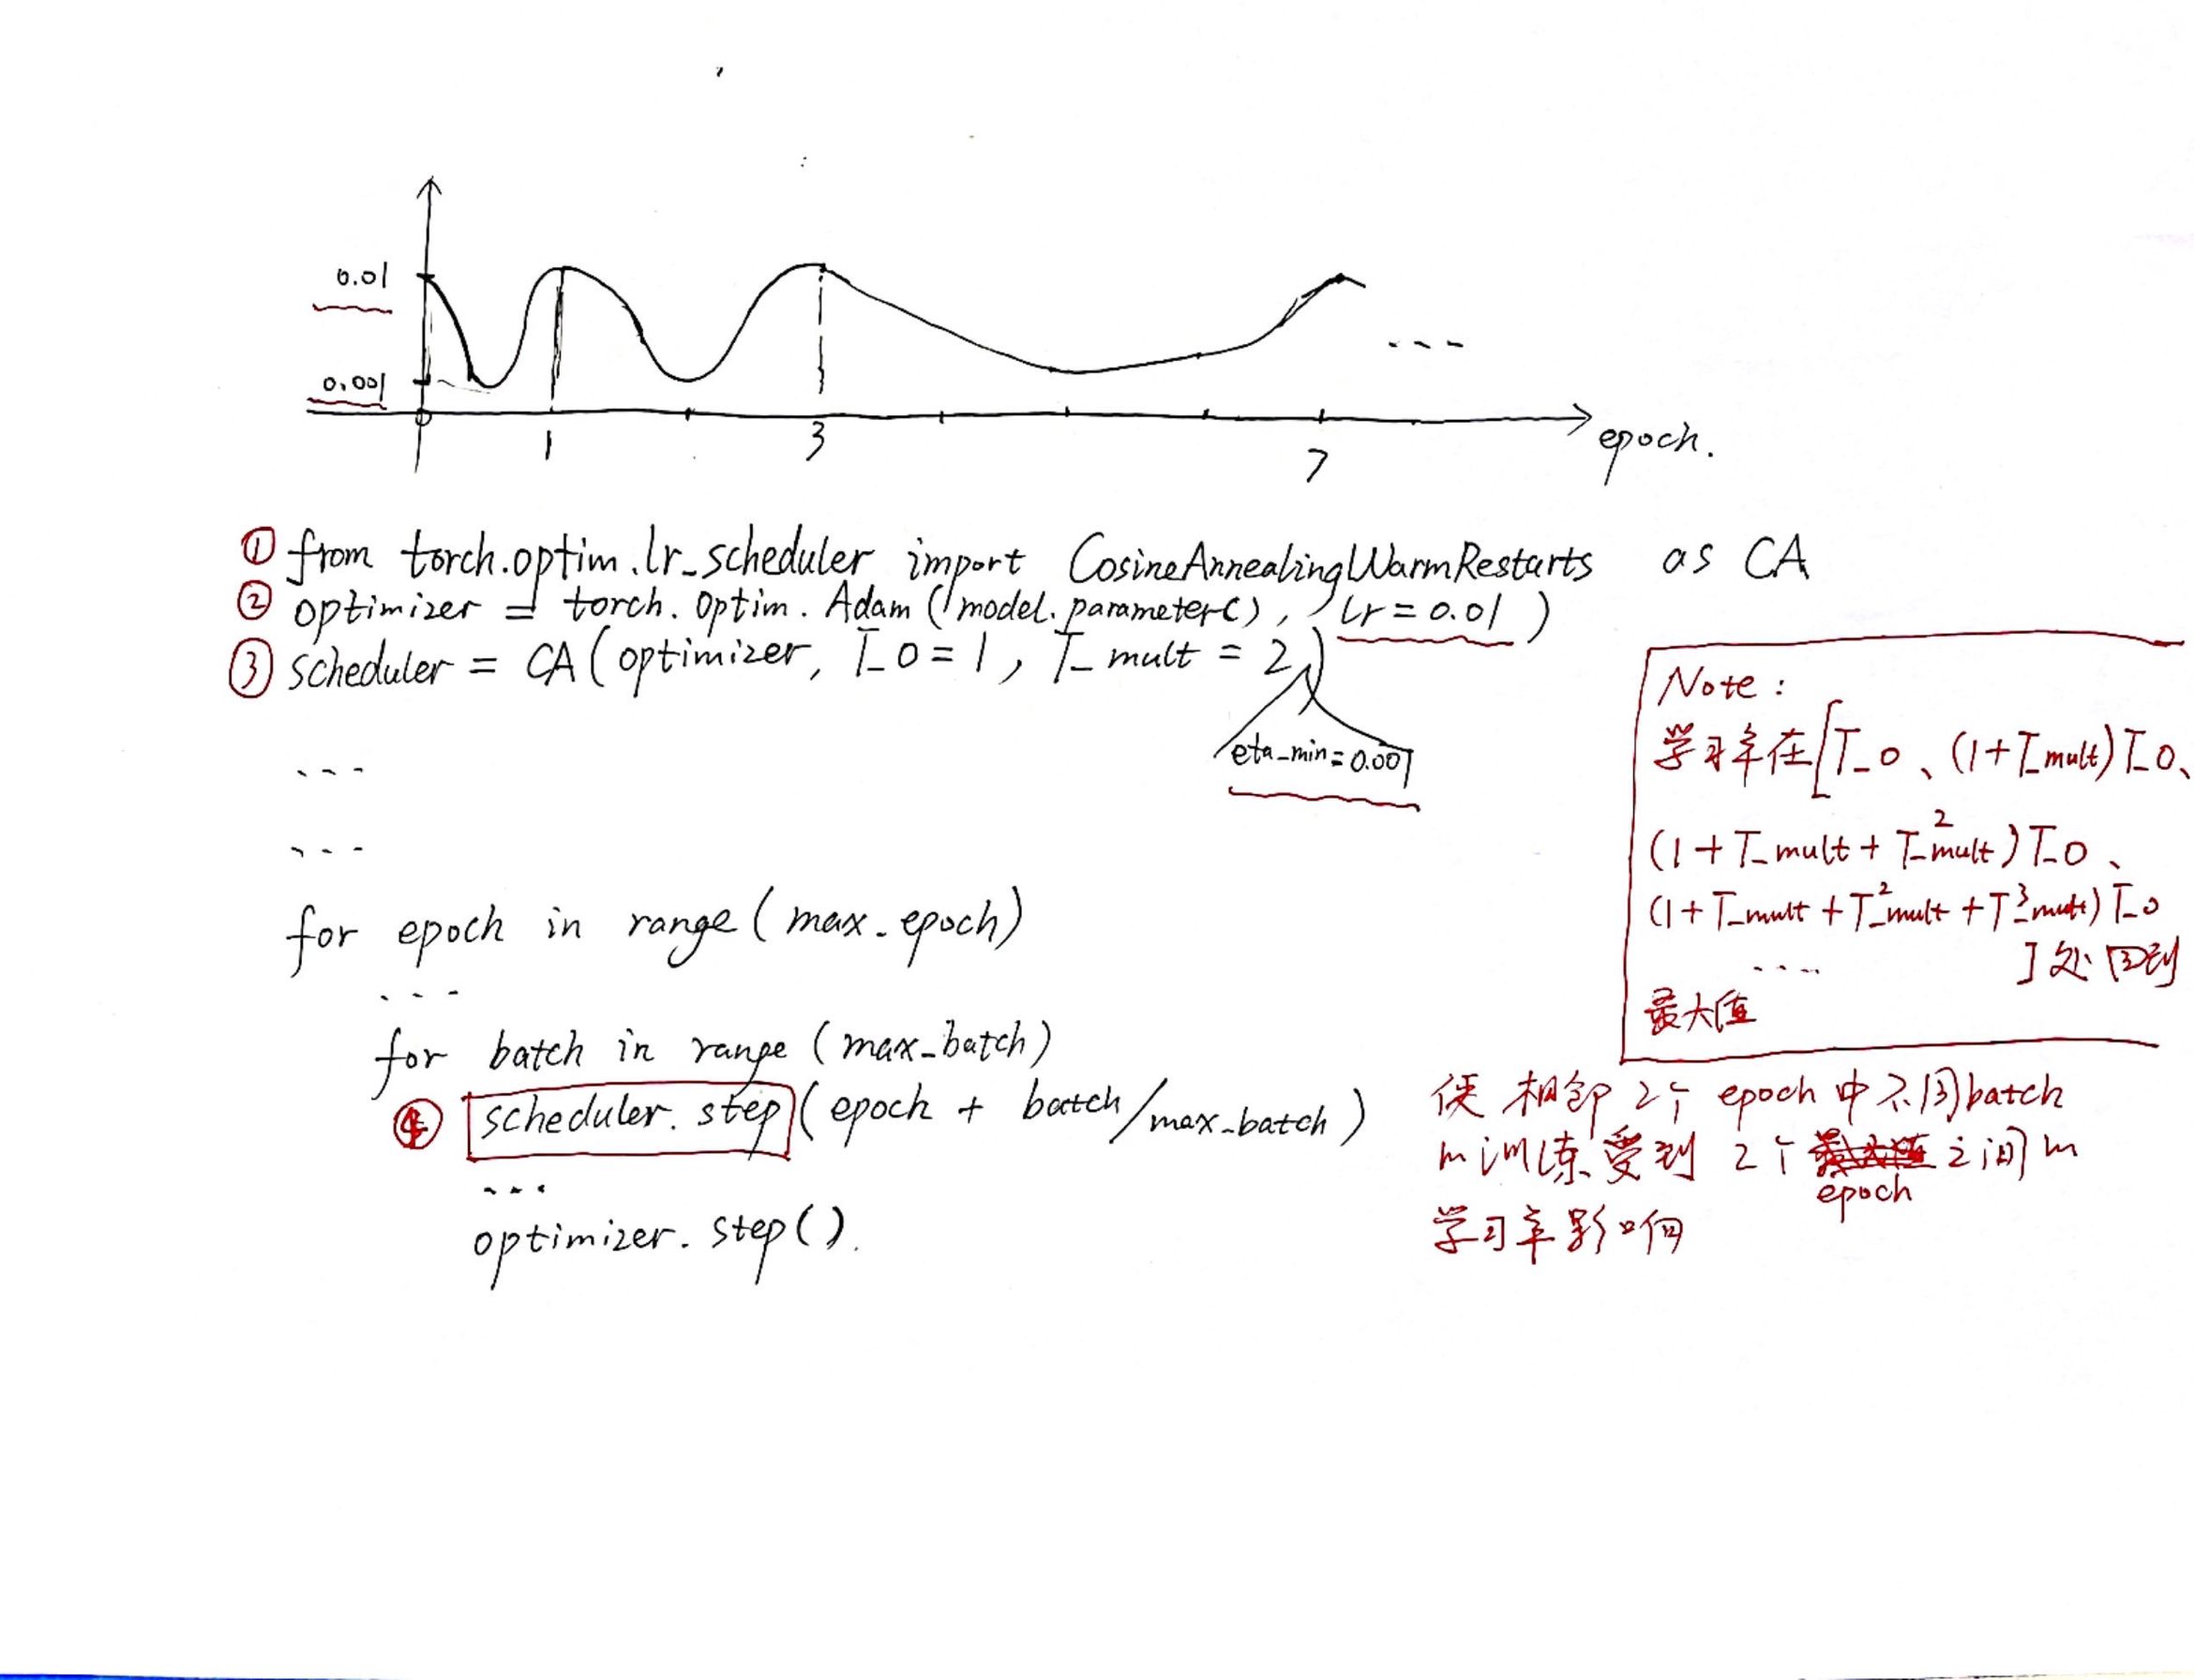 0.01
0.001
0
1
3
7
epoch.
① from torch.optim.lr_scheduler import CosineAnnealingWarmRestarts as CA
② optimizer = torch.optim.Adam(model.parameter(), lr=0.01)
③ scheduler = CA(optimizer, T_0=1, T_mult=2)
eta_min=0.001
---
---
for epoch in range(max_epoch)
---
for batch in range(max_batch)
④ scheduler.step(epoch + batch/max_batch)
...
optimizer.step().
---
Note:
学习率在[T_0、(1+T_mult)T_0、
(1+T_mult+T_mult²)T_0、
(1+T_mult+T_mult²+T_mult³)T_0
....]处回到
最大值
使相邻2个epoch中不同batch
的训练受到2个epoch之间的
学习率影响